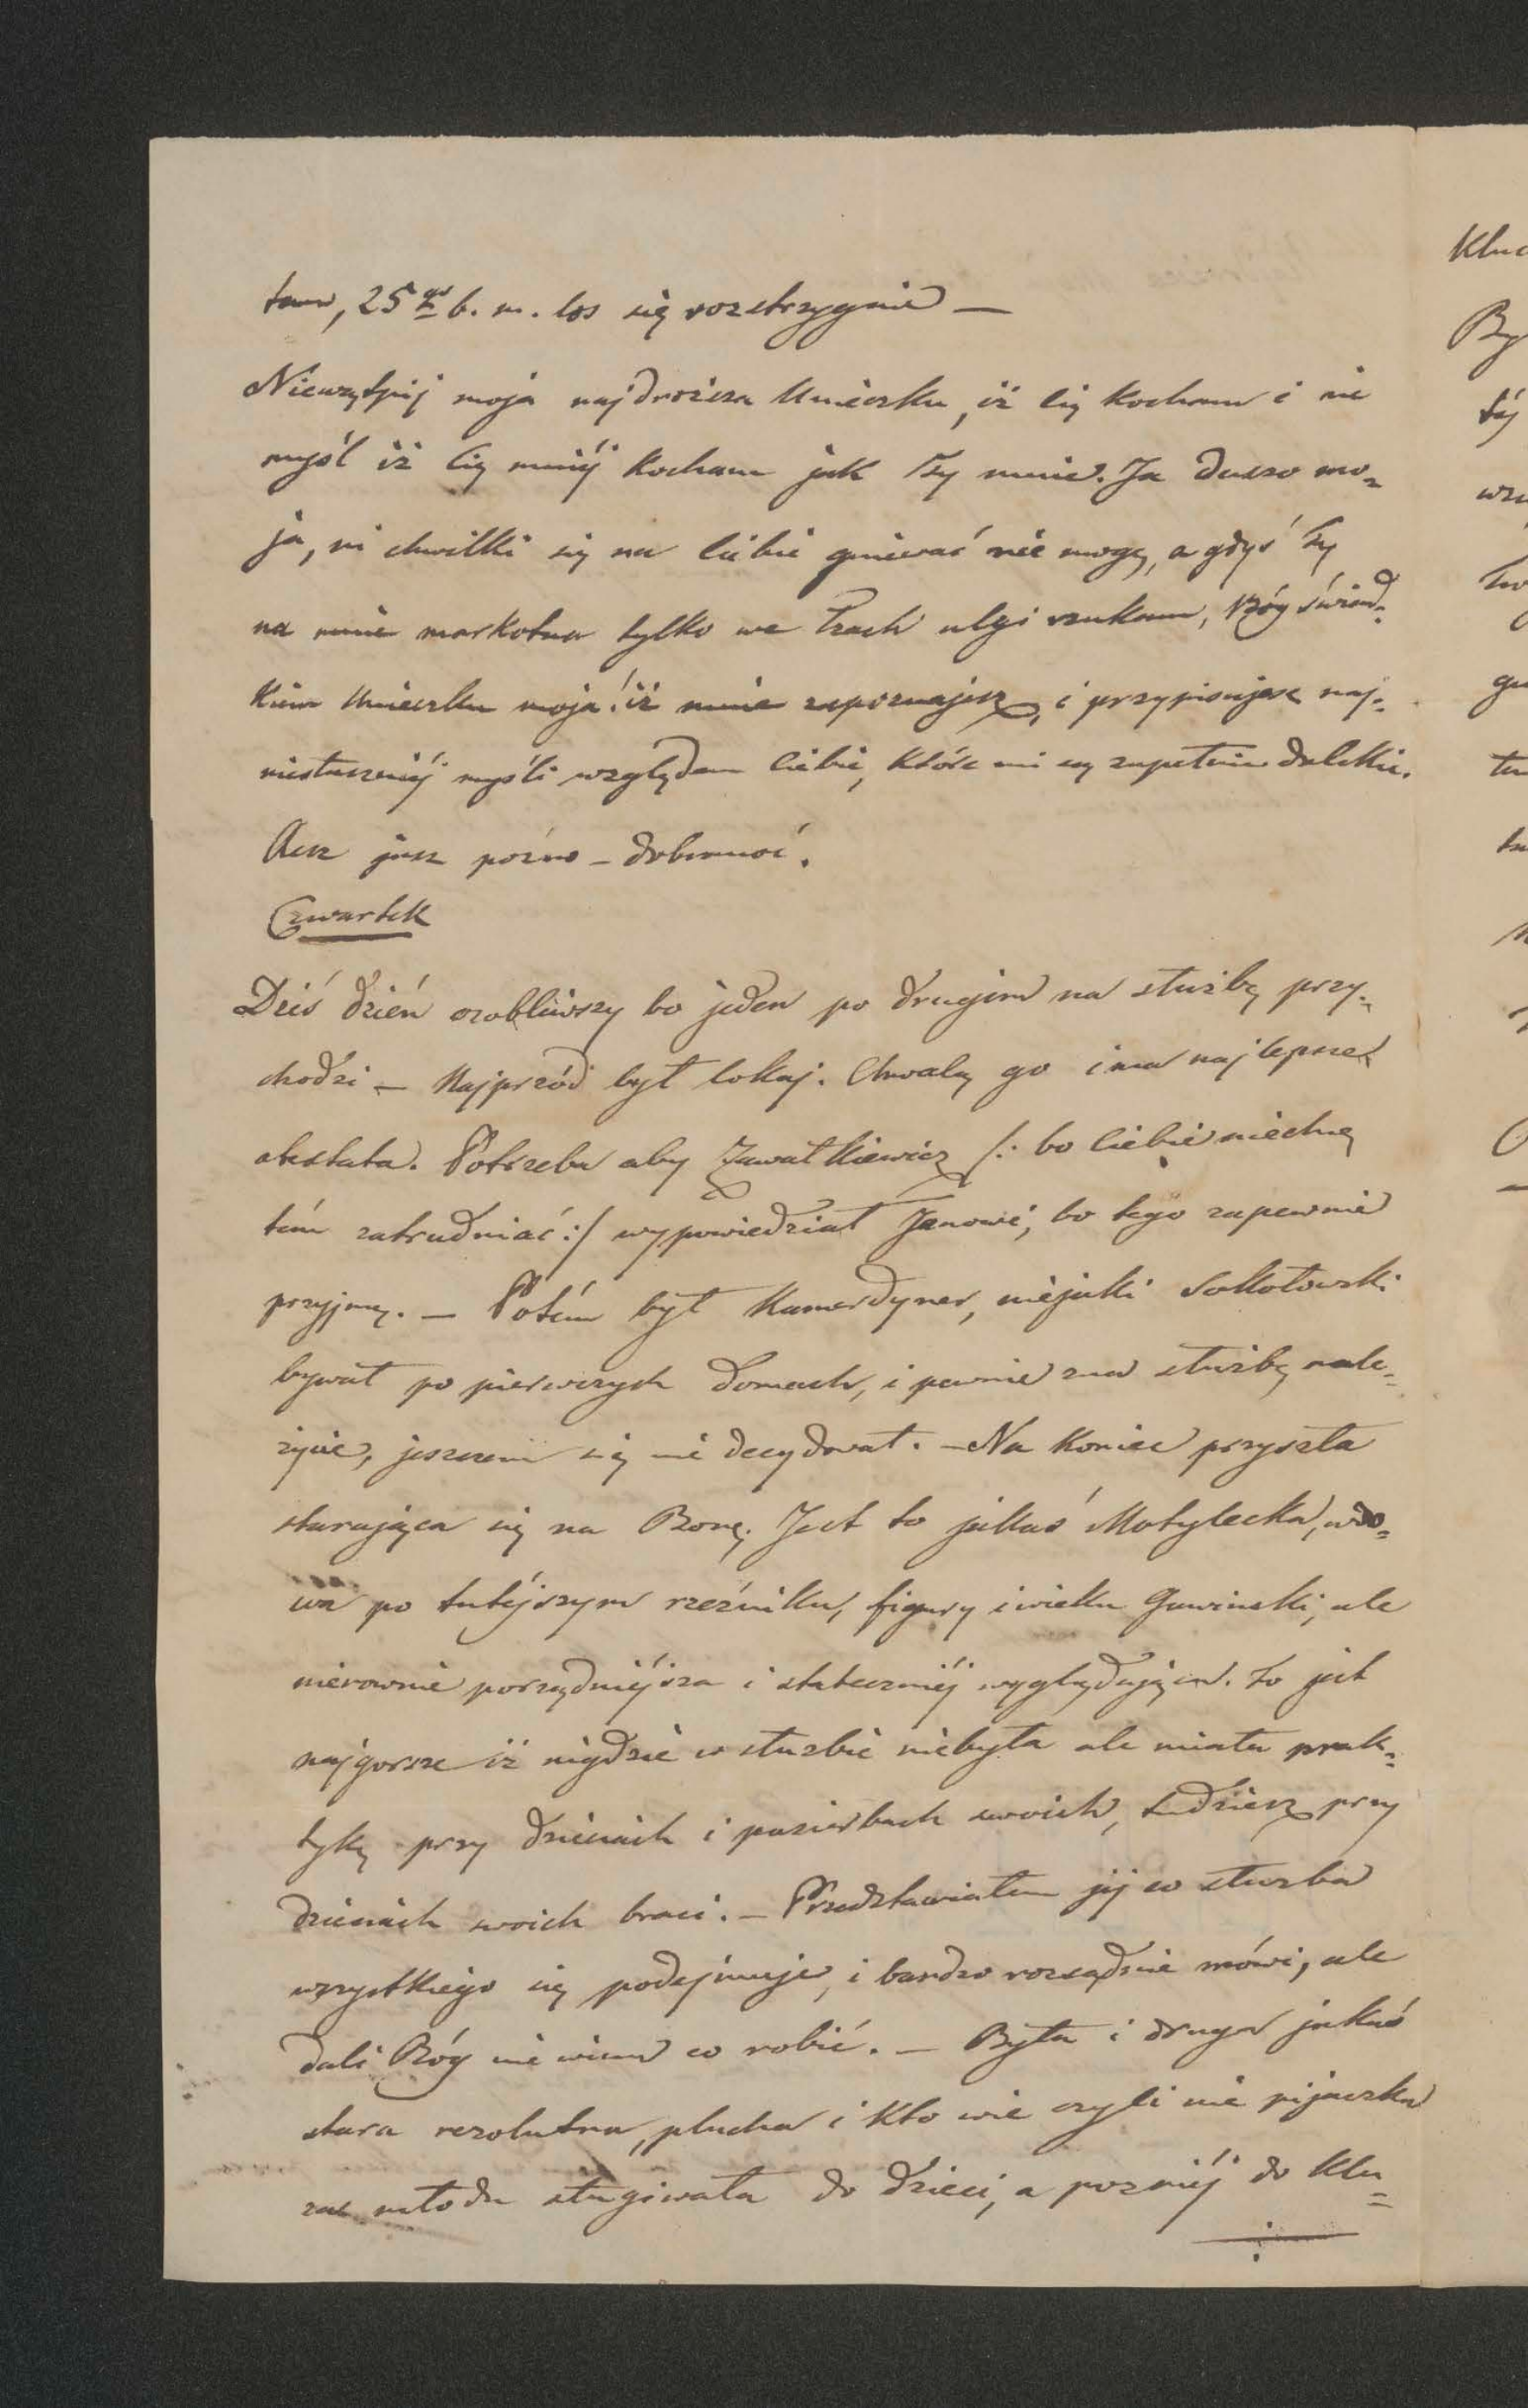 tam, 25go b. m. los się rozstrzygnie —
Niewątpij moja najdroższa Unieczku, iż Cię Kocham i nie
myśl iż Cię mniéj Kocham jak Ty mnie. Ja duszo mo-
ja, ni chwilki się na Ciebie gniewać nie mogę, a gdyś Ty
na mnie markotna tylko we Łzach ulgi szukam, Bóg świad-
kiem Unieczku moja! iż mnie zapoznajesz, i przypisujesz naj-
niesłuszniéj myśli względem Ciebie, które mi są zupełnie dalekie.
Acz jusz poźno – dobranoć.
Czwartek
Dziś dzień osobliwszy bo jeden po drugim na służbę przy-
chodzi — Najprzód był lokaj. Chwalą go i ma najlepsze
atestata. Potrzeba aby Zawałkiewicz /: bo Ciebie niechcę
tém zatrudniać :/ wypowiedział Janowi, bo tego zapewnie
przyjmę. — Potém był Kamerdyner, niejaki Sokołowski
bywał po pierwszych domach, i pewnie zna służbę nale-
życie, jeszczem się nie decydował. – Na Koniec przyszła
starająca się na Bonę. Jest to jakaś Motylecka, wdo-
wa po tutéjszym rzeźniku, figury i wieku Gawinski, ale
nierownie porządniéjsza i stateczniéj wyglądająca. to jest
najgorsze iż nigdzie w służbie niebyła ale miała prak-
tykę przy dzieciach i pasierbach swoich, tudziesz przy
dzieciach swoich braci. — Przedstawiałem jéj co służba
wszystkiego się podejmuje, i bardzo rozsądnie mówi, ale
dali Bóg nie wiem co robić. — Była i druga jakaś
stara rezolutna, plucha i Kto wie czyli nie pijaczka
za młodu sługiwała do dzieci, a pozniéj do Klu-